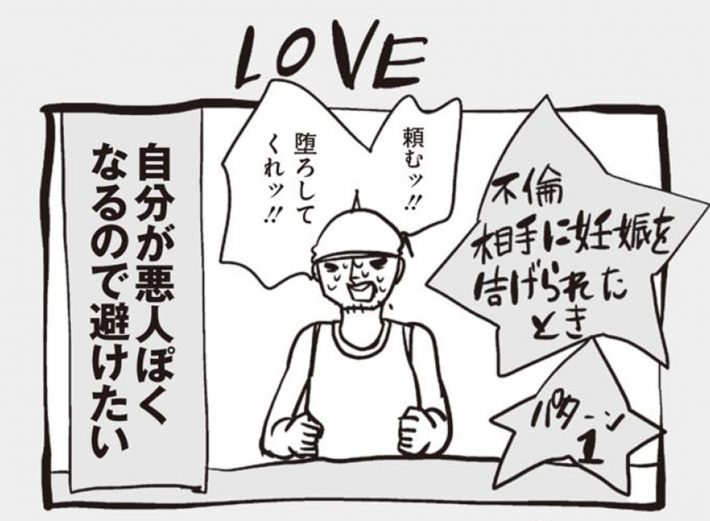 LOVE
不倫
相手に妊娠を
告げられた
とき
パターン
1
頼むッ!!
堕ろして
くれッ!!
自分が悪人ぽく
なるので避けたい